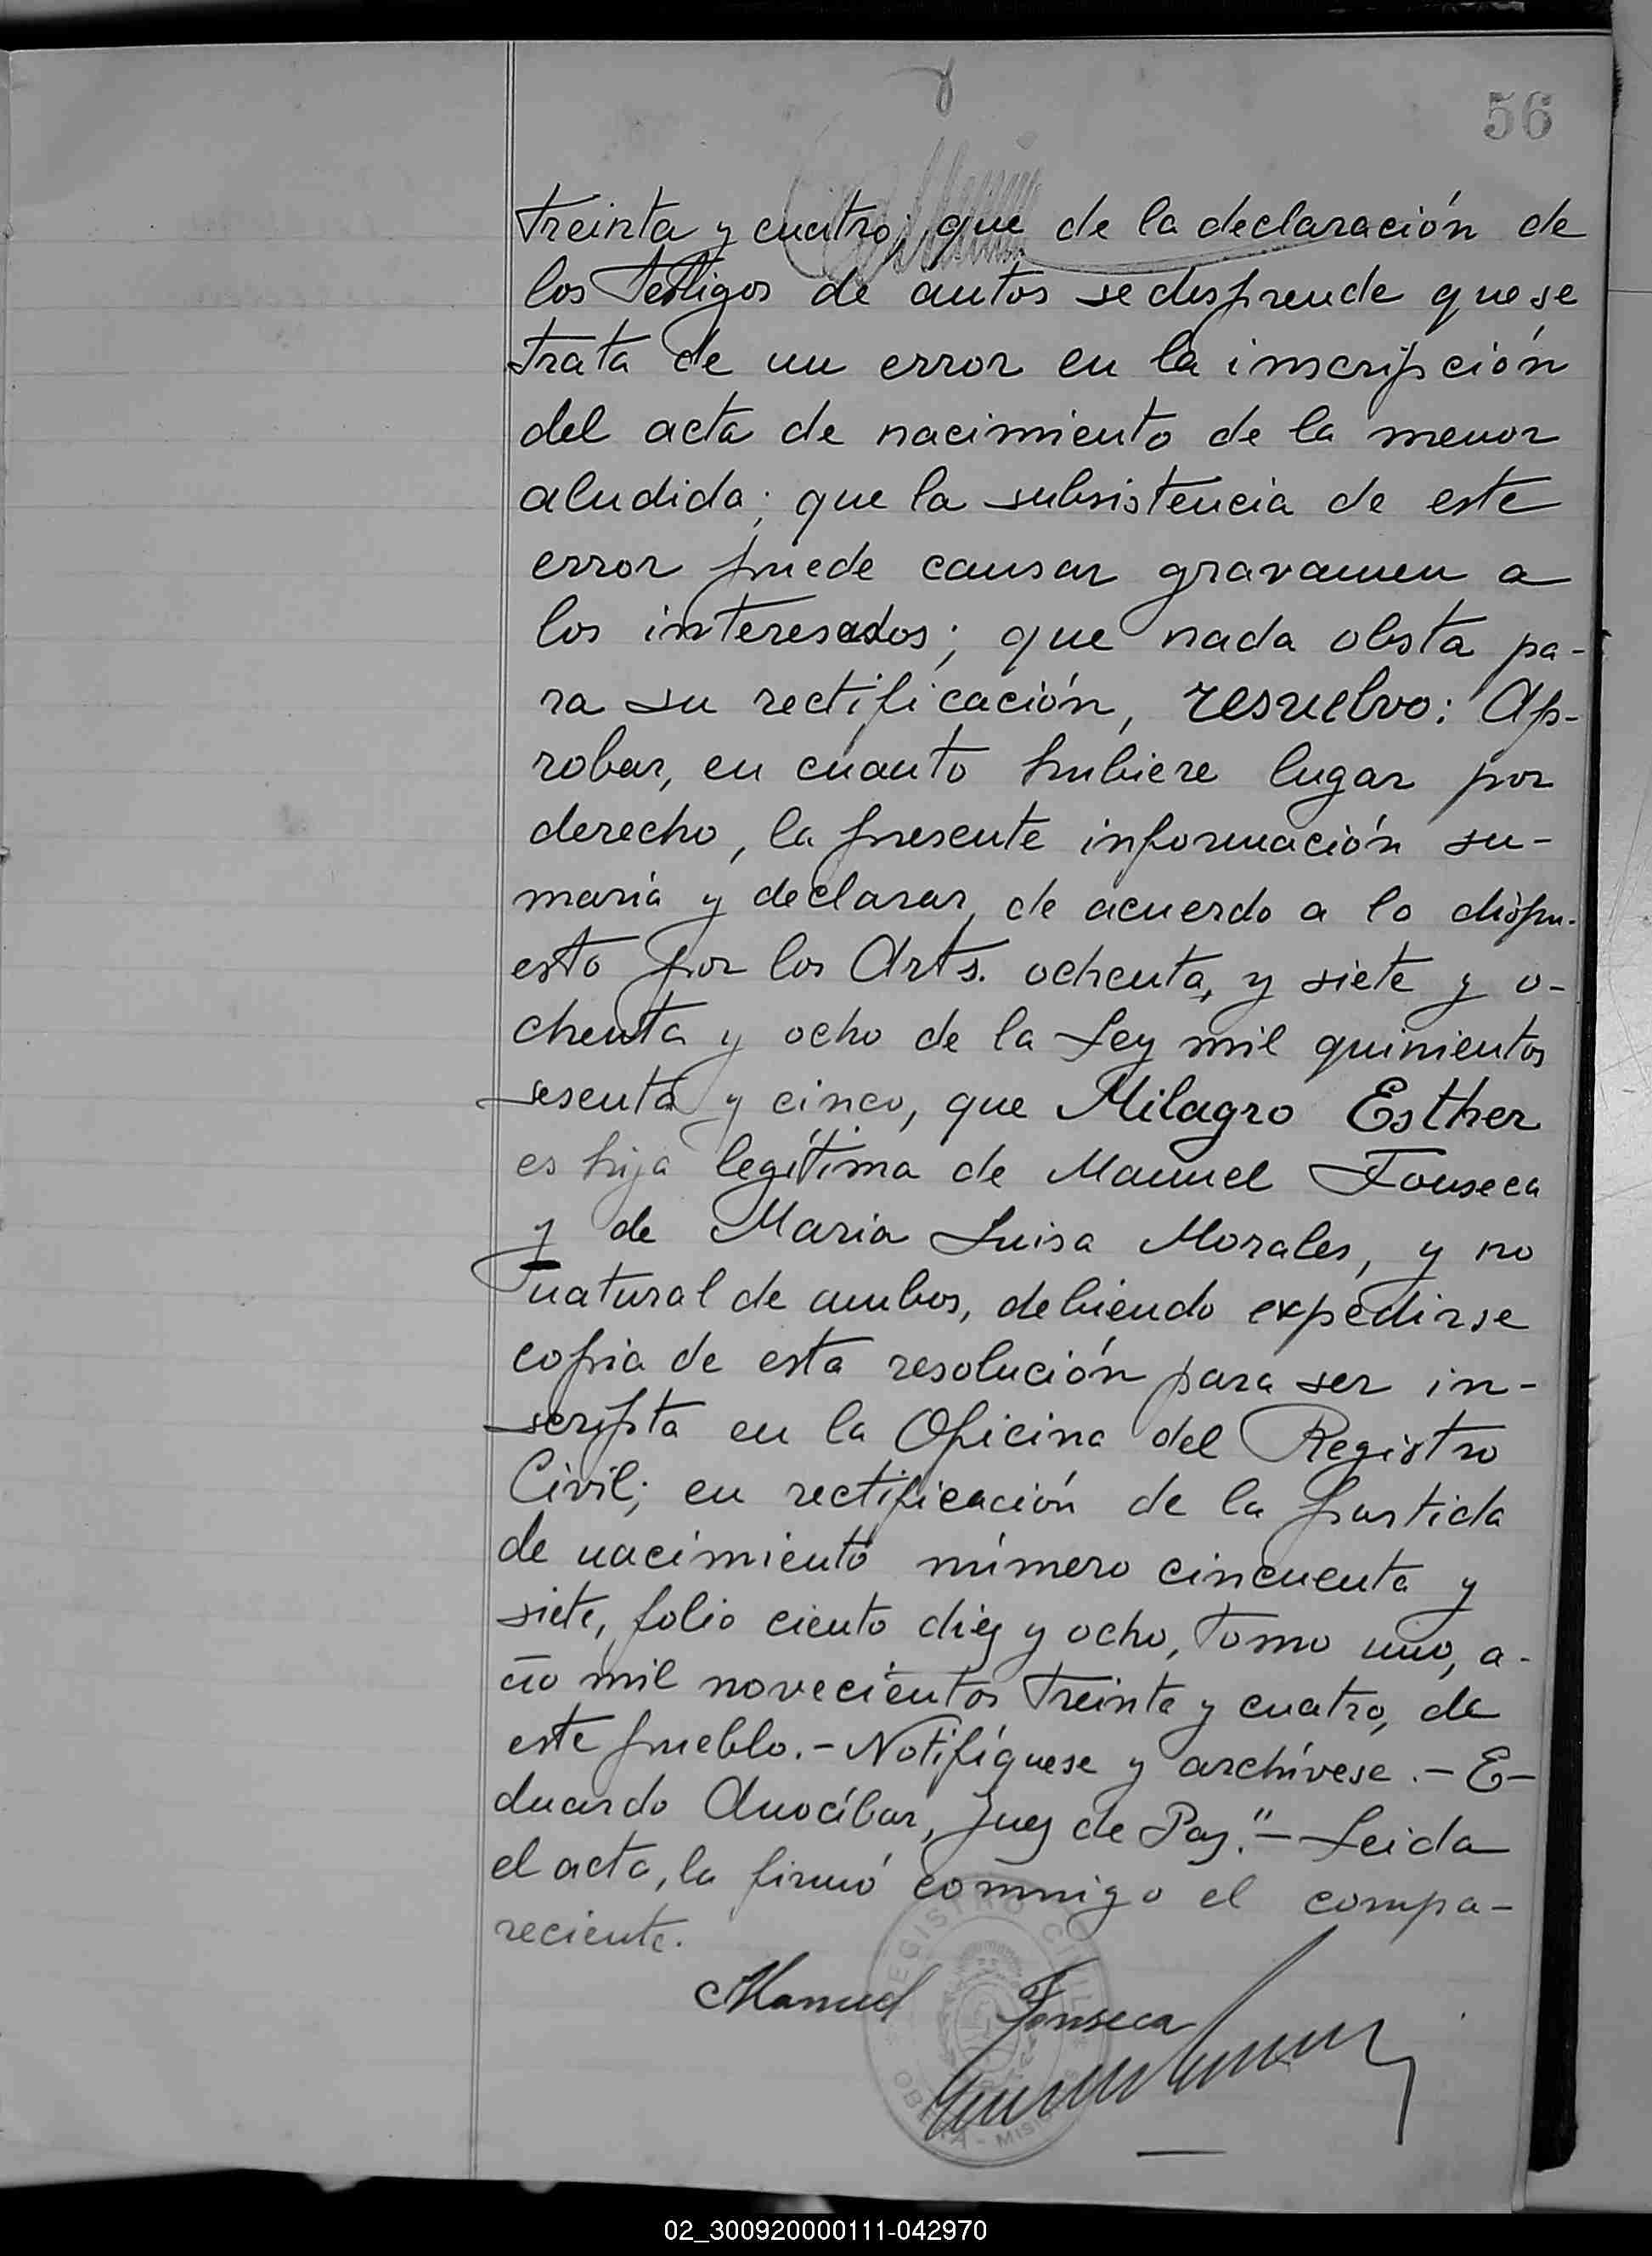 56
treinta y cuatro; que de la declaración de
los testigos de autos se desprende que se
trata de un error en la inscripción
del acta de nacimiento de la menor
aludida; que la subsistencia de este
error puede causar gravamen a
los interesados; que nada obsta pa-
ra su rectificación, resuelvo: Ap-
robar, en cuanto hubiere lugar por
derecho, la presente información su-
maria y declarar, de acuerdo a lo dispu-
esto por los Arts. ochenta, y siete y o-
chenta y ocho de la Ley mil quinientos
sesenta y cinco, que Milagro Esther
es hija legítima de Manuel Fonseca
y de Maria Luisa Morales, y no
natural de ambos, debiendo expedirse
copia de esta resolución para ser in-
scripta en la Oficina del Registro
Civil; en rectificación de la partida
de nacimiento número cincuenta y
siete, folio ciento diez y ocho, tomo uno, a-
ño mil novecientos treinta y cuatro, de
este pueblo.- Notifíquese y archívese.- E-
duardo Anocíbar, Juez de Paz."- Leida
el acta, la firmó conmigo el compa-
reciente.
Manuel Fonseca
REGISTRO CIVIL
OBERÁ - MISIONES
02_300920000111-042970